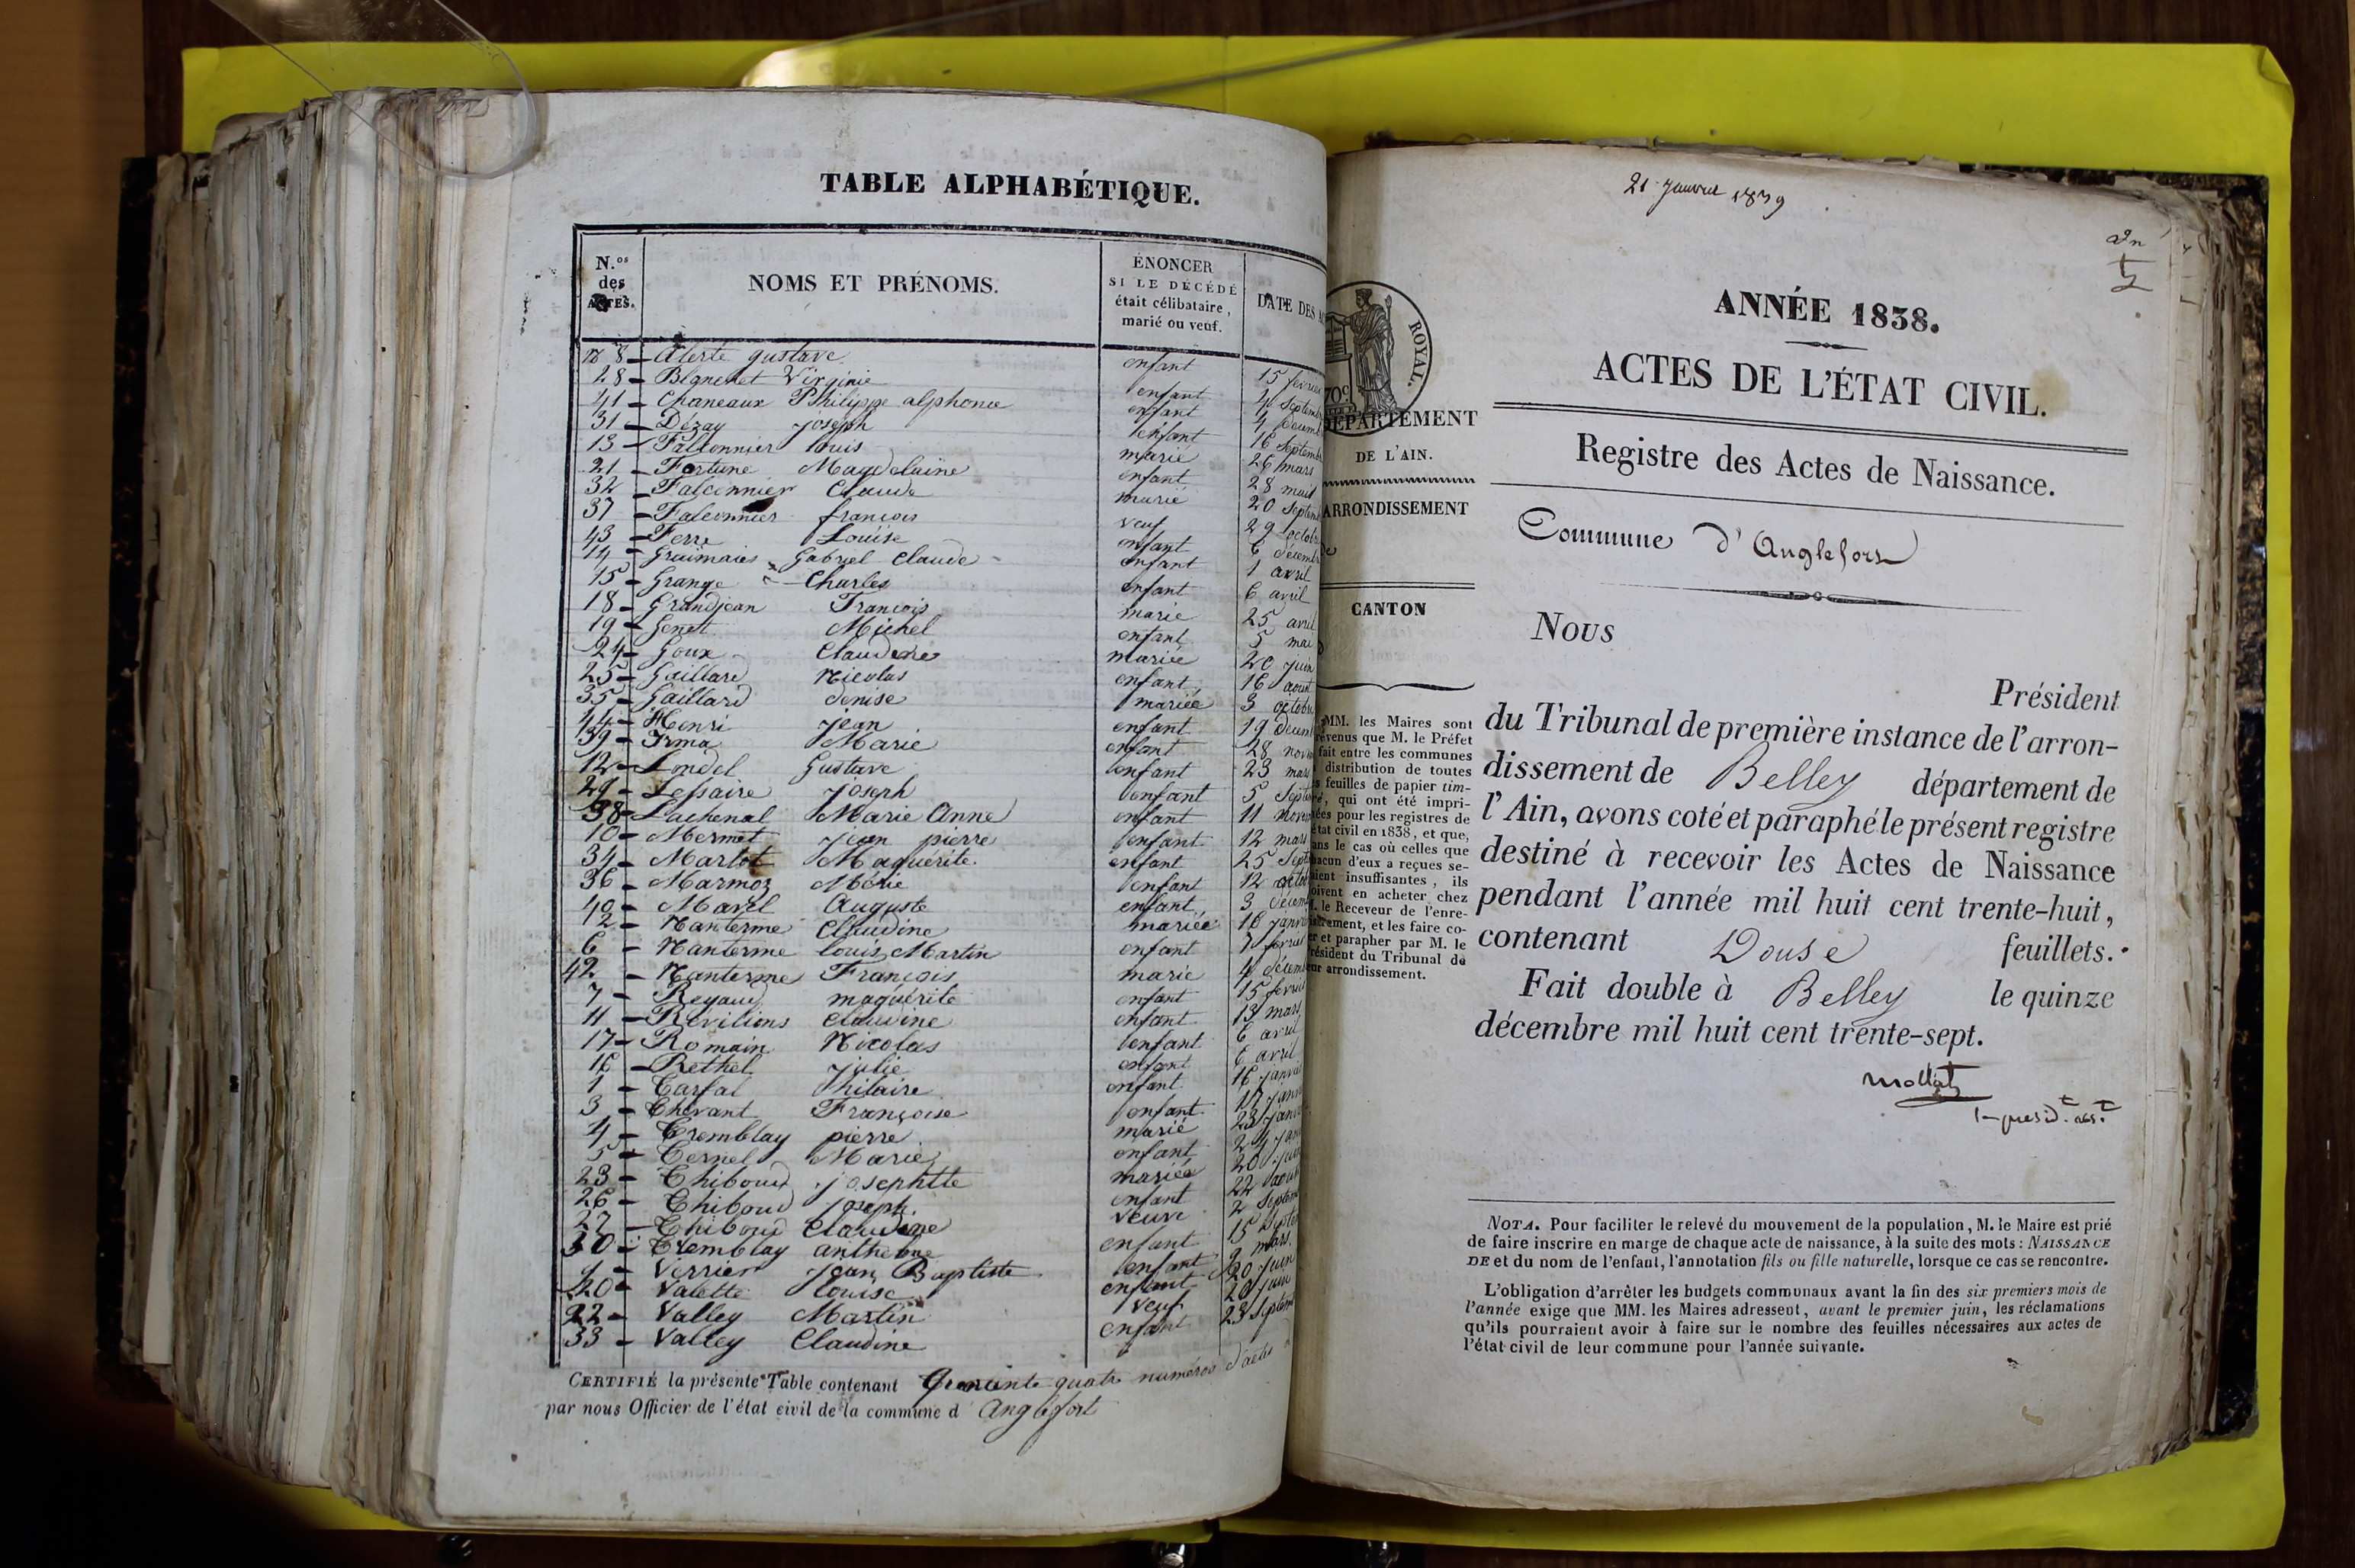 TABLE ALPHABÉTIQUE.
N.os des ACTES.
NOMS ET PRÉNOMS.
ÉNONCER
SI LE DÉCÉDÉ
était célibataire,
marié ou veuf.
DATE DES
8 - Alerte gustave enfant 15 février
28 - Virginie enfant 4 Septemb
41 - Chaneaux Philippe alphonse enfant 4
31 - Dézay joseph enfant 16 Septemb
13 - louis marié 26 mars
21 - Fortune Magdelaine enfant 28 mai
32 - Falconnier Claude marié 20 Septem
37 - Falconnier françois veuf 29 octob
43 - Ferre Louise enfant 6 décemb
14 - Gabriel Claude enfant 1 avril
15 - Grange Charles enfant 6 avril
18 - Grandjean François marié 25 avril
19 - Genet Michel enfant 5 mai
24 - Goux Claudine mariée 20 juin
25 - Gaillard Nicolas enfant 16 aout
35 - Gaillard denise mariée 3 octob
44 - Henri jean enfant 19 décem
39 - Irma Marie enfant 28 nov
12 - Londel Gustave enfant 23 mars
29 - Lessaire Joseph enfant 5 Septe
38 - Lachenal Marie Anne enfant 11 nove
10 - Mermet Jean pierre enfant 12 mars
34 - Martot Maguerite enfant 25 Sept
36 - Marmoz enfant 12 octob
40 - Marel Auguste enfant 3 décem
2 - Nanterme Claudine mariée 16 janvi
6 - Nanterme louis Martin enfant 7 févrie
42 - Nanterme François marié 4 décem
7 - Reyaud maguérite enfant 15 févrie
11 - Révilions claudine enfant 13 mars
17 - Romain Nicolas enfant 6 avril
16 - Rethel julie enfant 6 avril
1 - Tarfal hilaire enfant 16 janvi
3 - Françoise enfant 17 janv
4 - Tremblay pierre marié 23 janv
5 - Ternel Marie enfant 24 janv
23 - Thiboud josephtte mariée 20 juin
26 - Thiboud joseph enfant 22 aout
27 - Thiboud Claudine veuve 2 Septem
30 - Tremblay anthelme enfant 15 Septe
9 - Verrier Jean Baptiste enfant 9 mars
20 - Valette louise enfant 20 juin
22 - Valley Martin veuf 20 juin
33 - Valley Claudine enfant 23 Septem
CERTIFIÉ la présente Table contenant quatre numéros d'actes
par nous Officier de l'état civil de la commune d Anglefort
21 Janvier 1839
ROYAL.
70c.
DÉPARTEMENT
DE L'AIN.
ARRONDISSEMENT
CANTON
MM. les Maires sont
prévenus que M. le Préfet
fait entre les communes
distribution de toutes
feuilles de papier tim-
, qui ont été impri-
mées pour les registres de
état civil en 1838, et que,
dans le cas où celles que
chacun d'eux a reçues se-
raient insuffisantes, ils
doivent en acheter chez
M. le Receveur de l'enre-
gistrement, et les faire co-
ter et parapher par M. le
Président du Tribunal de
leur arrondissement.
ANNÉE 1838.
ACTES DE L'ÉTAT CIVIL.
Registre des Actes de Naissance.
Commune d'Anglefort
Nous
Président
du Tribunal de première instance de l'arron-
dissement de Belley département de
l'Ain, avons coté et paraphé le présent registre
destiné à recevoir les Actes de Naissance
pendant l'année mil huit cent trente-huit,
contenant Douse feuillets.
Fait double à Belley le quinze
décembre mil huit cent trente-sept.
Mollet
NOTA. Pour faciliter le relevé du mouvement de la population, M. le Maire est prié
de faire inscrire en marge de chaque acte de naissance, à la suite des mots : NAISSANCE
DE et du nom de l'enfant, l'annotation fils ou fille naturelle, lorsque ce cas se rencontre.
L'obligation d'arrêter les budgets communaux avant la fin des six premiers mois de
l'année exige que MM. les Maires adressent, avant le premier juin, les réclamations
qu'ils pourraient avoir à faire sur le nombre des feuilles nécessaires aux actes de
l'état civil de leur commune pour l'année suivante.